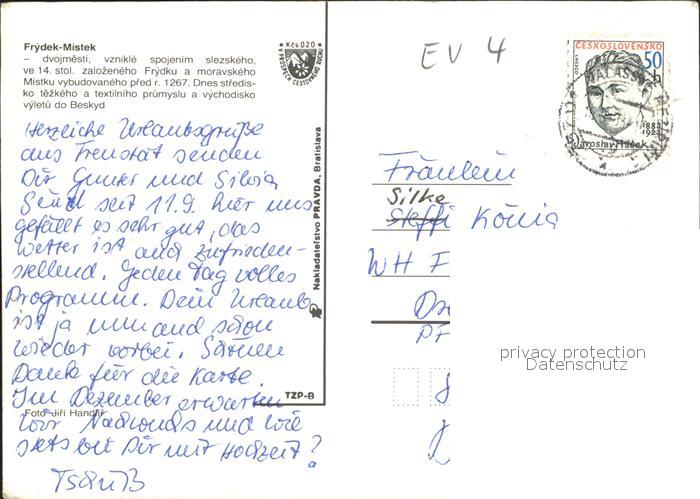 Frýdek-Místek
– dvojměstí, vzniklé spojením slezského,
ve 14. stol. založeného Frýdku a moravského
Místku vybudovaného před r. 1267. Dnes středis-
ko těžkého a textilního průmyslu a východisko
výletů do Beskyd
Kčs 0,20
Herzliche Urlaubsgrüße
aus Frenštát senden
Dir Gunter und Silvia
Sind seit 11.9. hier uns
gefällt es sehr gut, das
Wetter ist auch zufrieden-
stellend. Jeden Tag volles
Programm. Dein Urlaub
ist ja nun auch schon
wieder vorbei. Schönen
Dank für die Karte.
Im Dezember erwarten
wir Nachwuchs und wie
steht bei Dir mit Hochzeit?
Tschüß
Foto Jiří Handlíř
Nakladatelství PRAVDA, Bratislava
TZP-B
EV 4
ČESKOSLOVENSKO
50 h
1883
1923
Jaroslav Hašek
Fräulein
Silke
Steffi König
WH F
privacy protection
Datenschutz